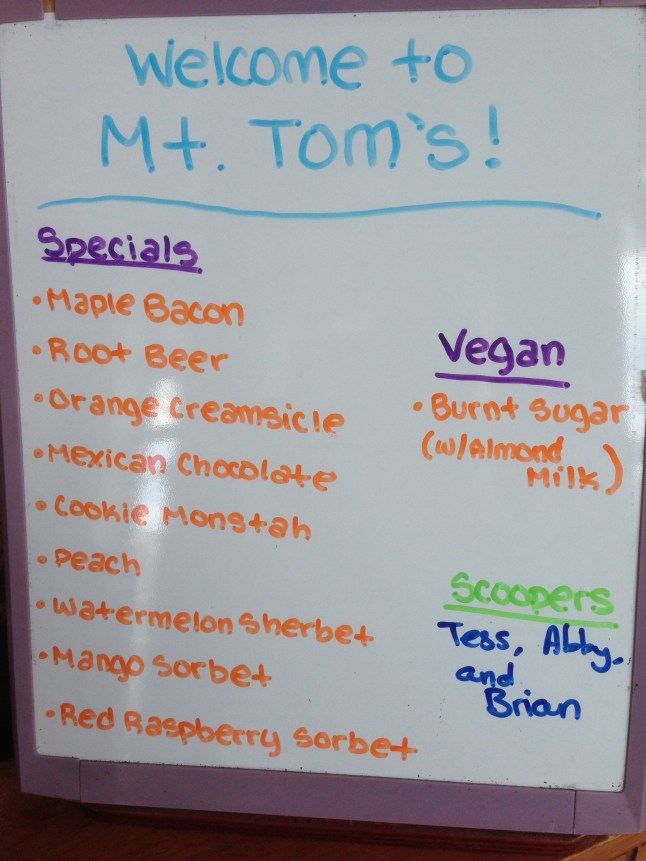 Welcome to
Mt. Tom's!
Specials
• Maple Bacon
• Root Beer
• Orange Creamsicle
• Mexican Chocolate
• Cookie Monstah
• Peach
• Watermelon Sherbet
• Mango Sorbet
• Red Raspberry Sorbet
Vegan
• Burnt Sugar
(w/Almond
Milk)
Scoopers
Tess, Abby,
and
Brian